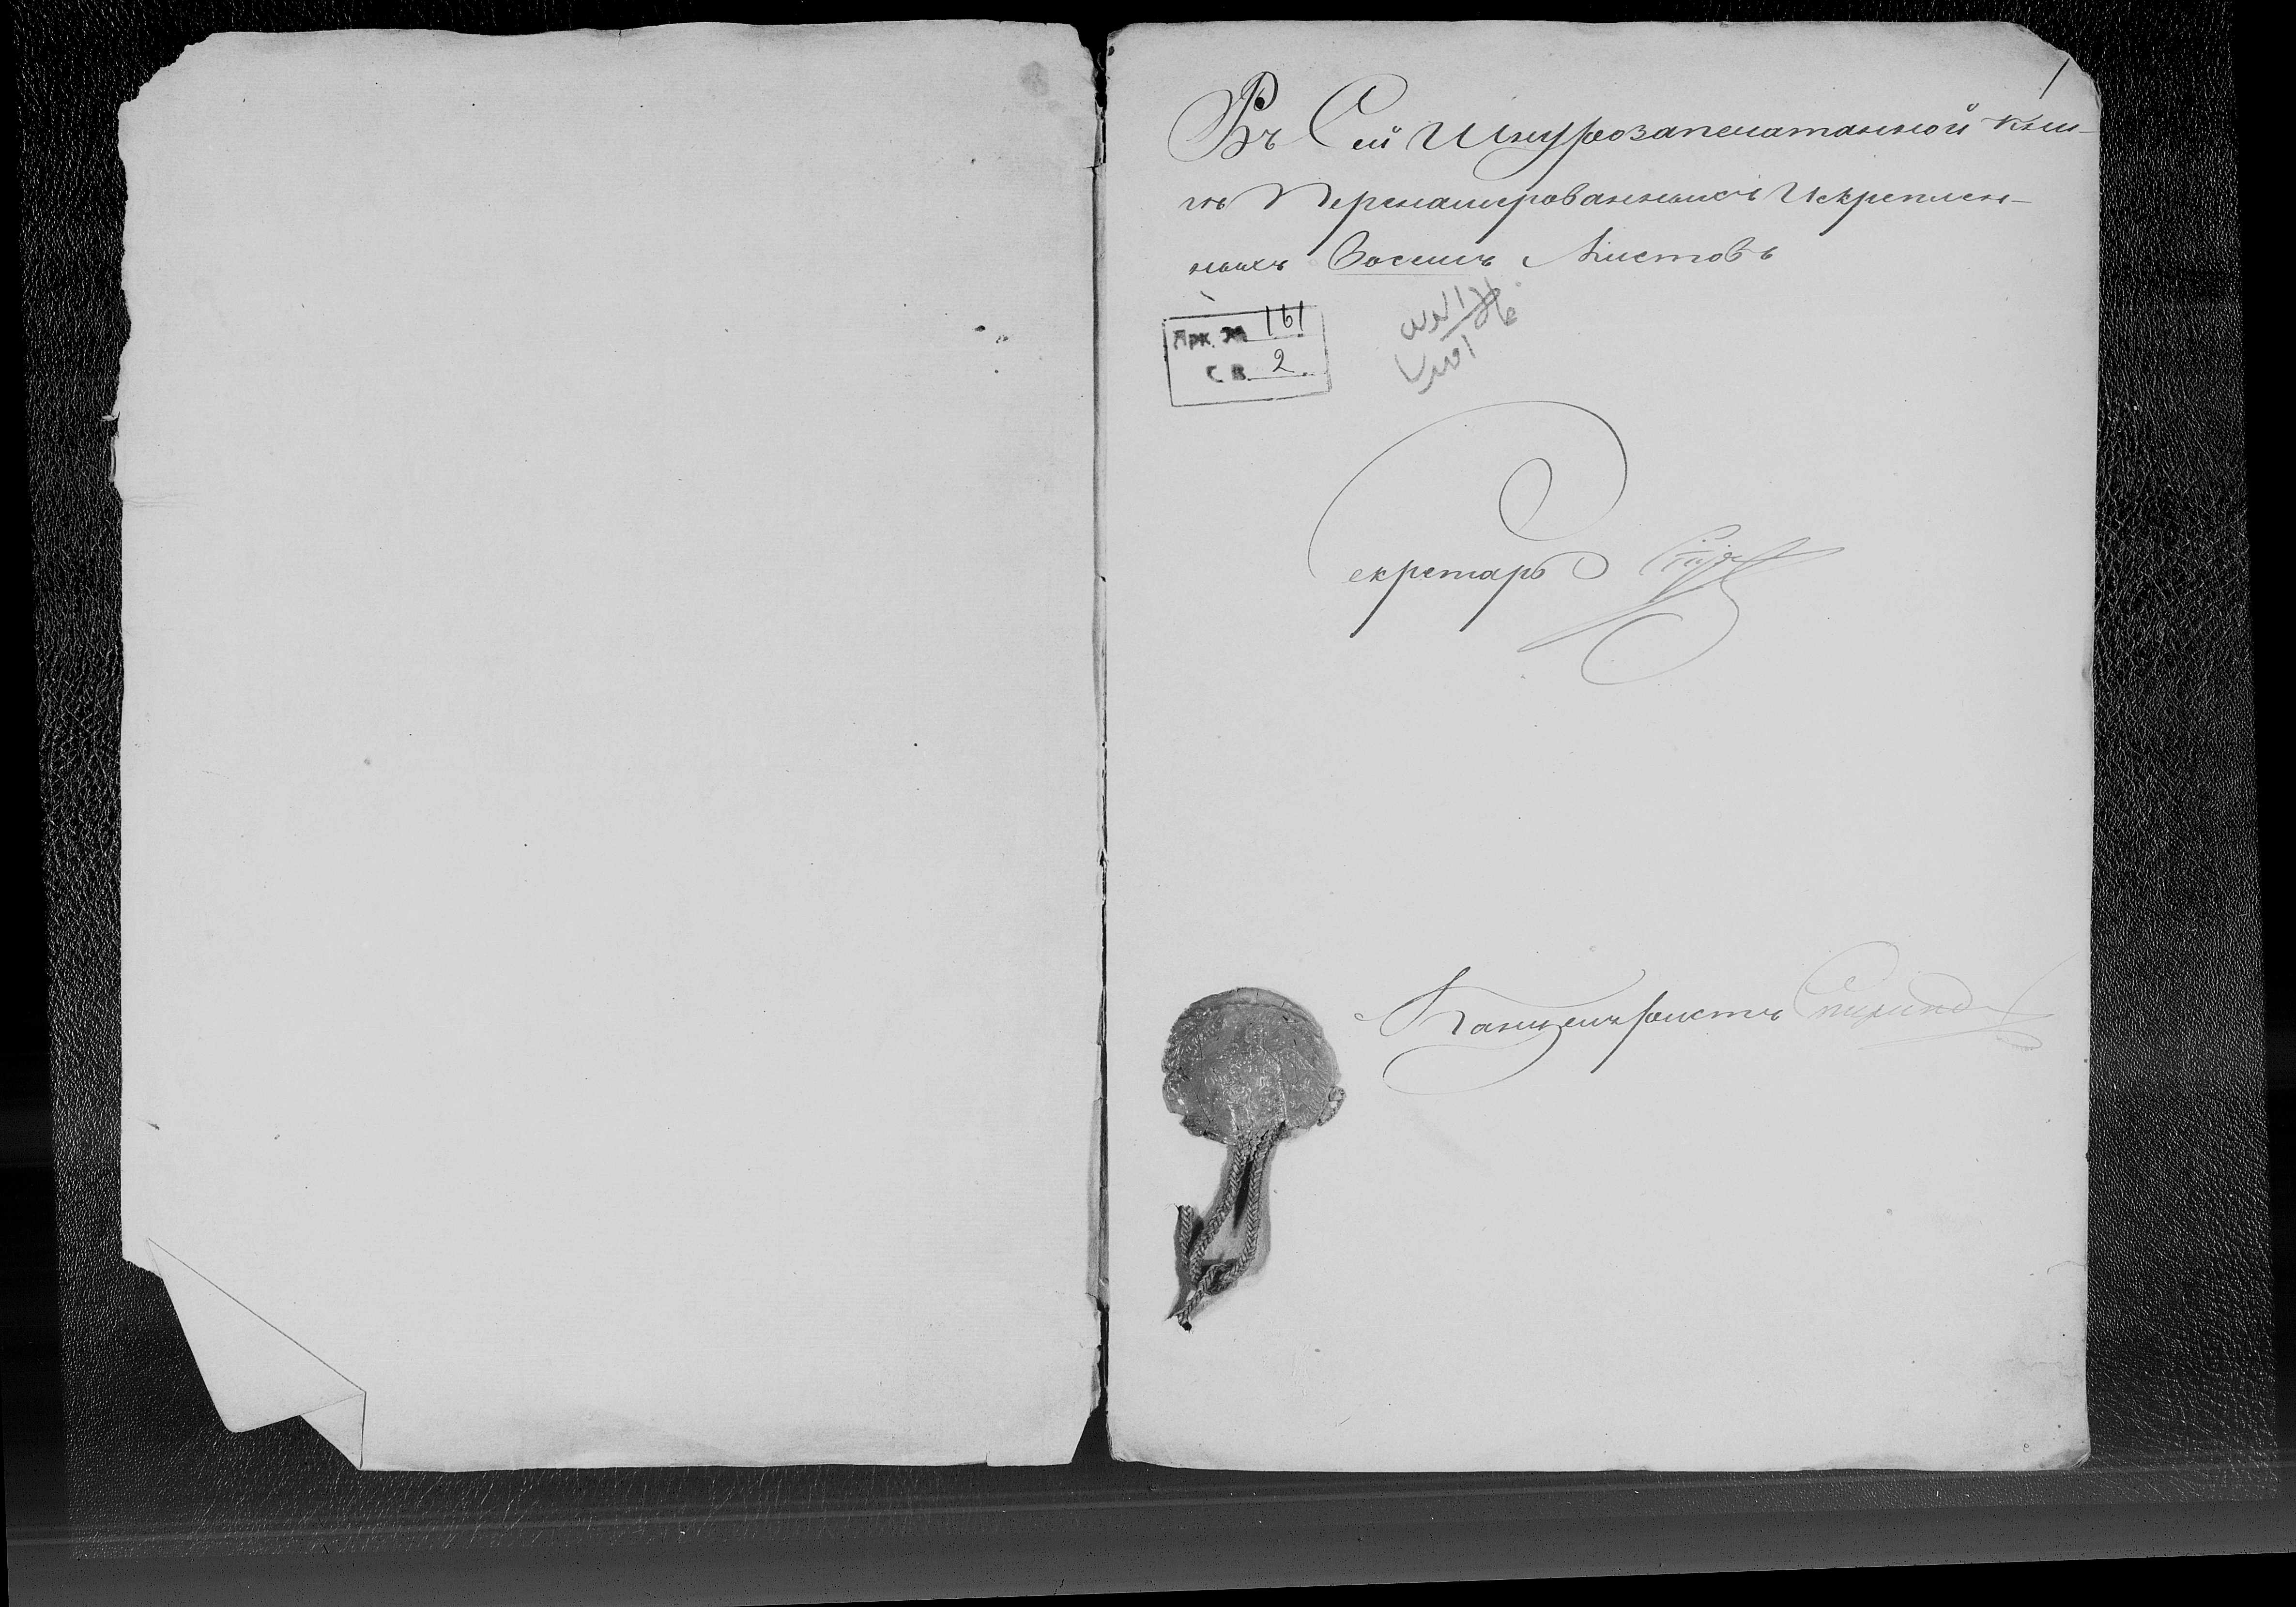 1
Въ Сей Шнурозапечатанной кни-
гѣ Перенамерованныхъ Искреплен-
ныхъ Восемь Листовъ
Арх. № 161
С В. 2
Секретарь
Канцеляристъ